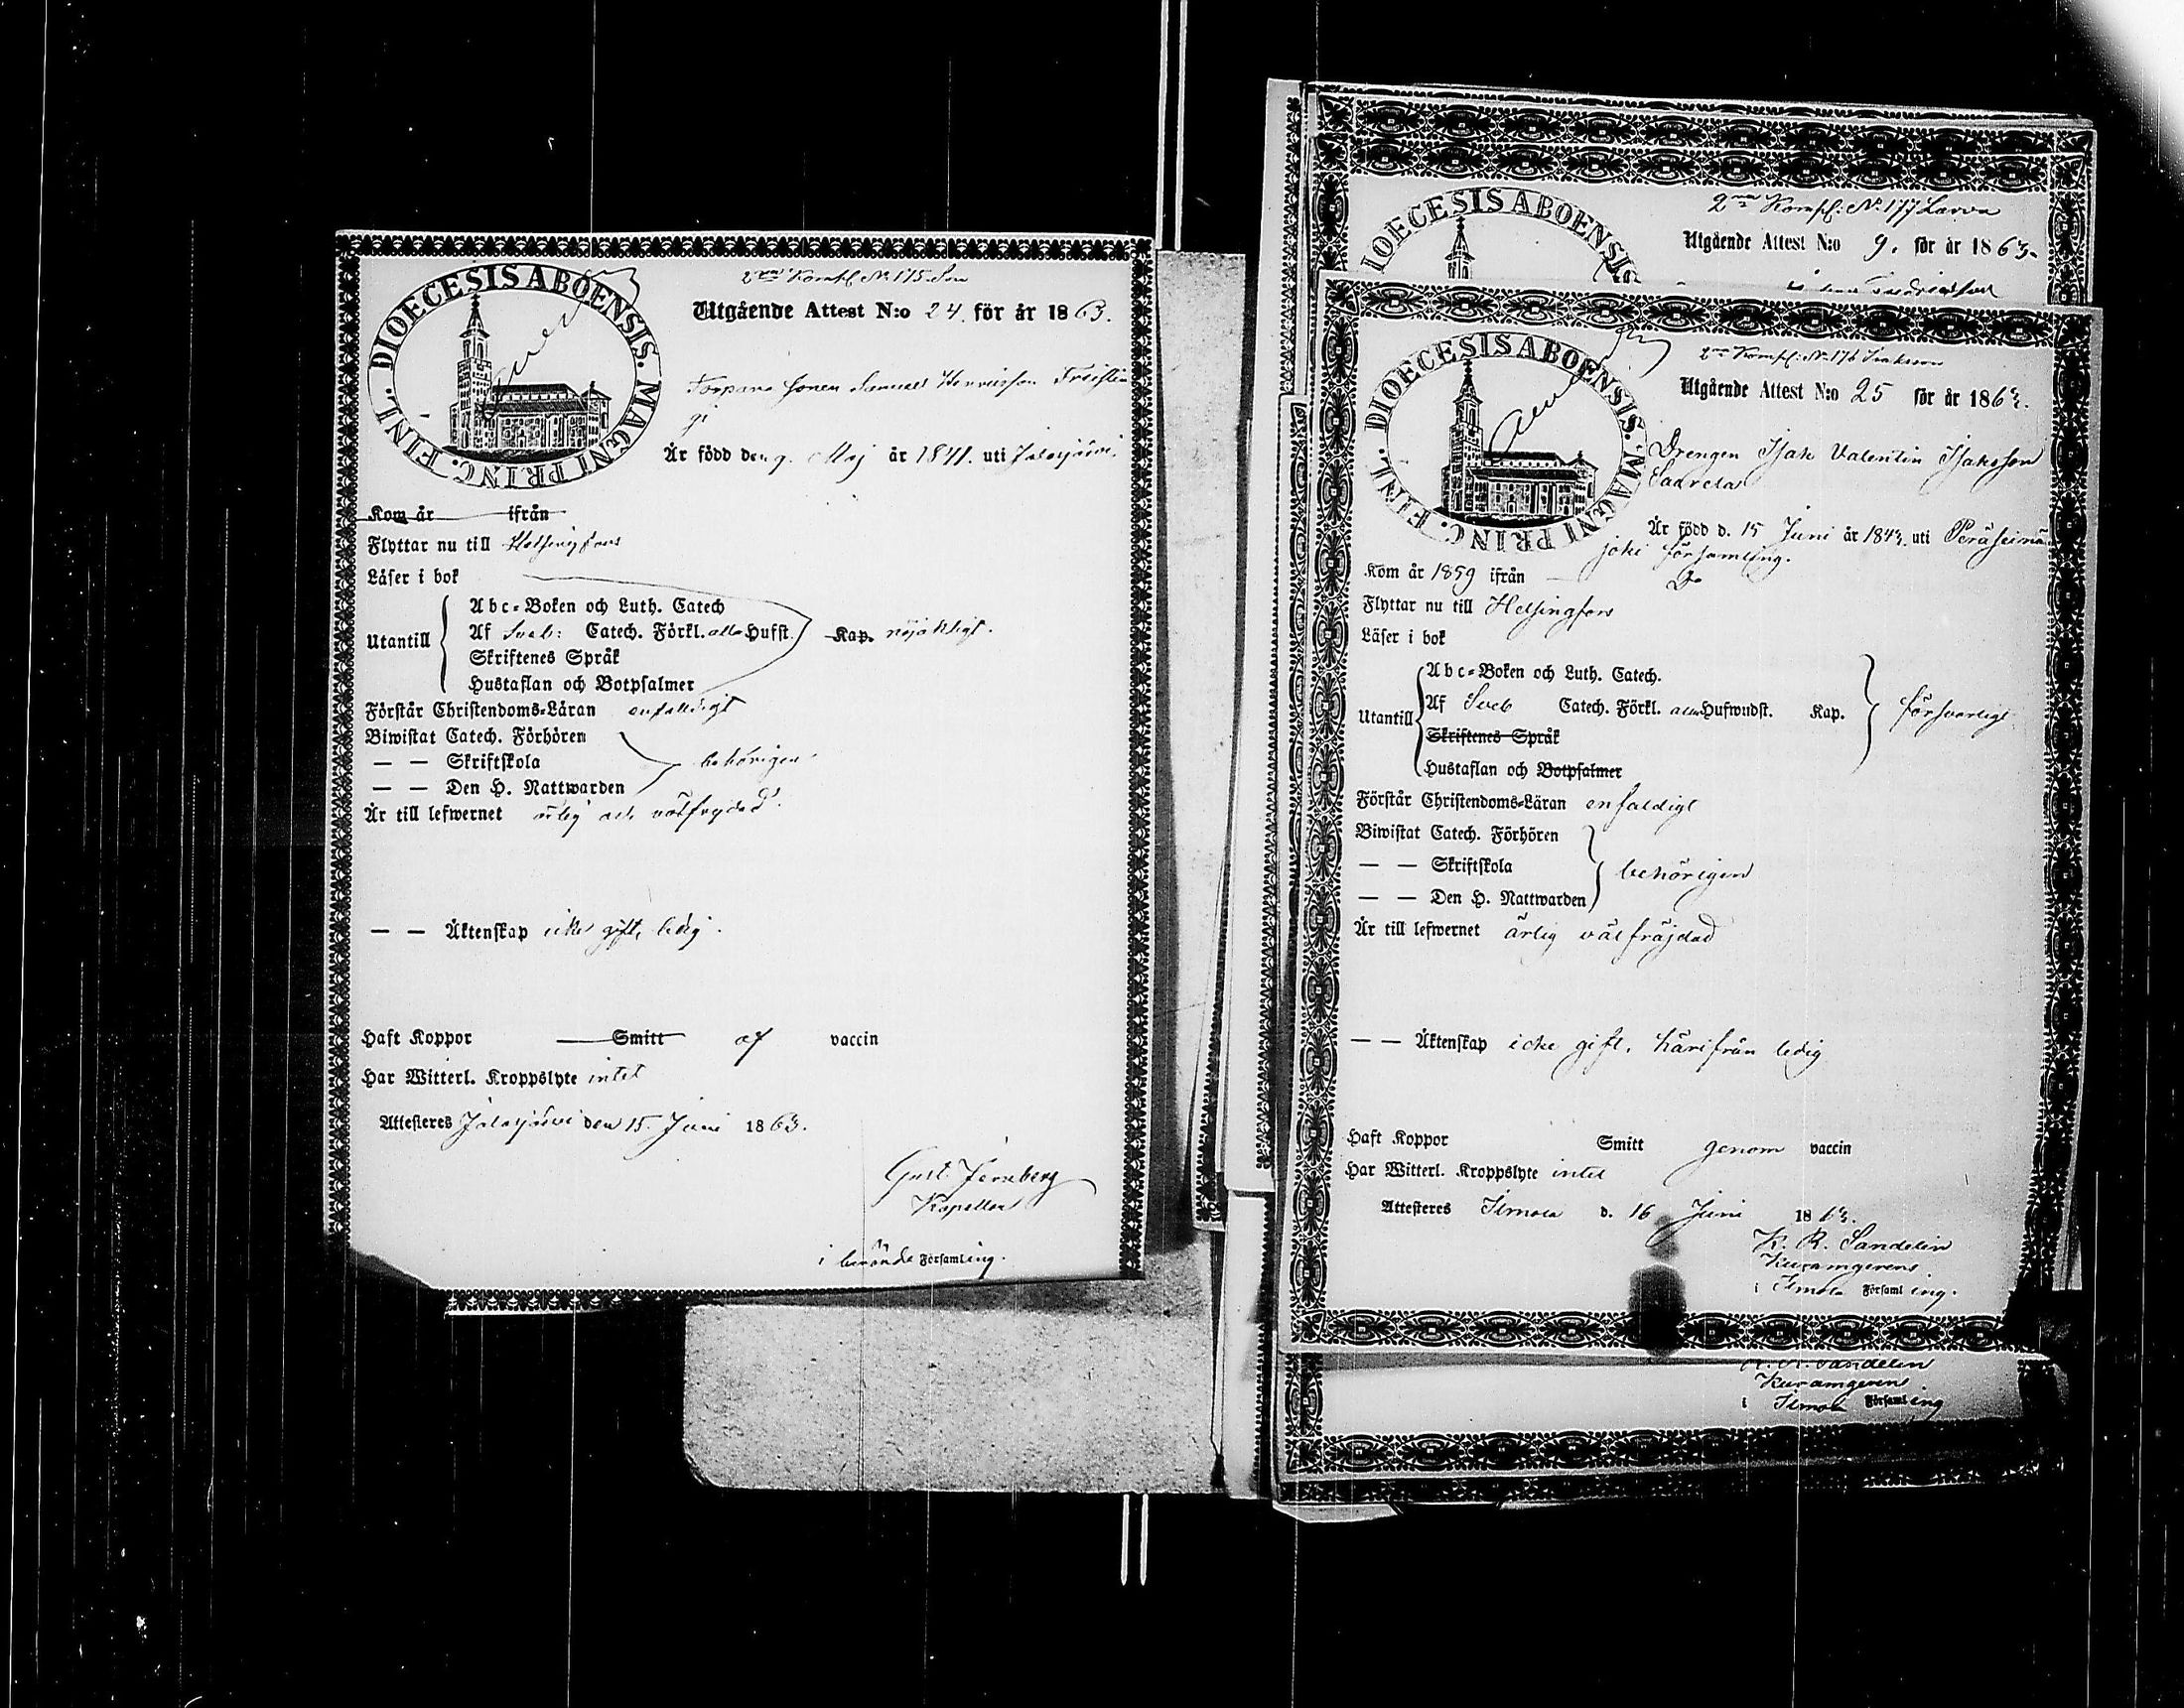 DIOECESIS ABOENSIS. MAGNI PRINC. FINL.
2ra Kompl. No 175. Sen
Utgående Attest N:o 24. för år 1863.
Torpare sonen Samuel Henriksson
Är född den 9. Maj år 1841. uti Jalasjärvi.
Kom år ifrån
Flyttar nu till Helsingfors
Läser i bok
Utantill
Abc-Boken och Luth. Catech
Af Sveb: Catech. Förkl. alla Hufst. Kap. nöjaktigt.
Skriftenes Språk
Hustaflan och Botpsalmer
Förstår Christendoms-Läran enfaldigt
Biwistat Catech. Förhören
— — Skriftskola behörigen
— — Den H. Nattwarden
Är till lefwernet ärlig och välfrejdad.
— — Äktenskap icke gift, ledig.
Haft Koppor Smitt af vaccin
Har Witterl. Kroppslyte intet
Attesteres Jalasjärvi den 15. Juni 1863.
Gust. Jernberg
Kapellan
i berörde Församling.
DIOECESIS ABOENSIS
2ra Kompl: No 177 Larva
Utgående Attest N:o 9. för år 1863.
DIOECESIS ABOENSIS. MAGNI PRINC. FINL.
2ra Kompl: No 176 Isaksson
Utgående Attest N:o 25 för år 1863.
Drengen Isak Valentin Isaksson
Är född d. 15 Juni år 1843. uti Peräseinä
joki församling.
Kom år 1859 ifrån Do
Flyttar nu till Helsingfors
Läser i bok
Utantill
Abc-Boken och Luth. Catech.
Af Sveb Catech. Förkl. alla Hufwudst. Kap. försvarligt
Skriftenes Språk
Hustaflan och Botpsalmer
Förstår Christendoms-Läran enfaldigt
Biwistat Catech. Förhören
— — Skriftskola behörigen
— — Den H. Nattwarden
Är till lefwernet ärlig välfräjdad
— — Äktenskap icke gift, härifrån ledig
Haft Koppor Smitt genom vaccin
Har Witterl. Kroppslyte intet
Attesteres Ilmola d. 16 Juni 1863.
K. R. Sandelin
i Ilmola Församling.
K. R. Sandelin
i Ilmola Församling